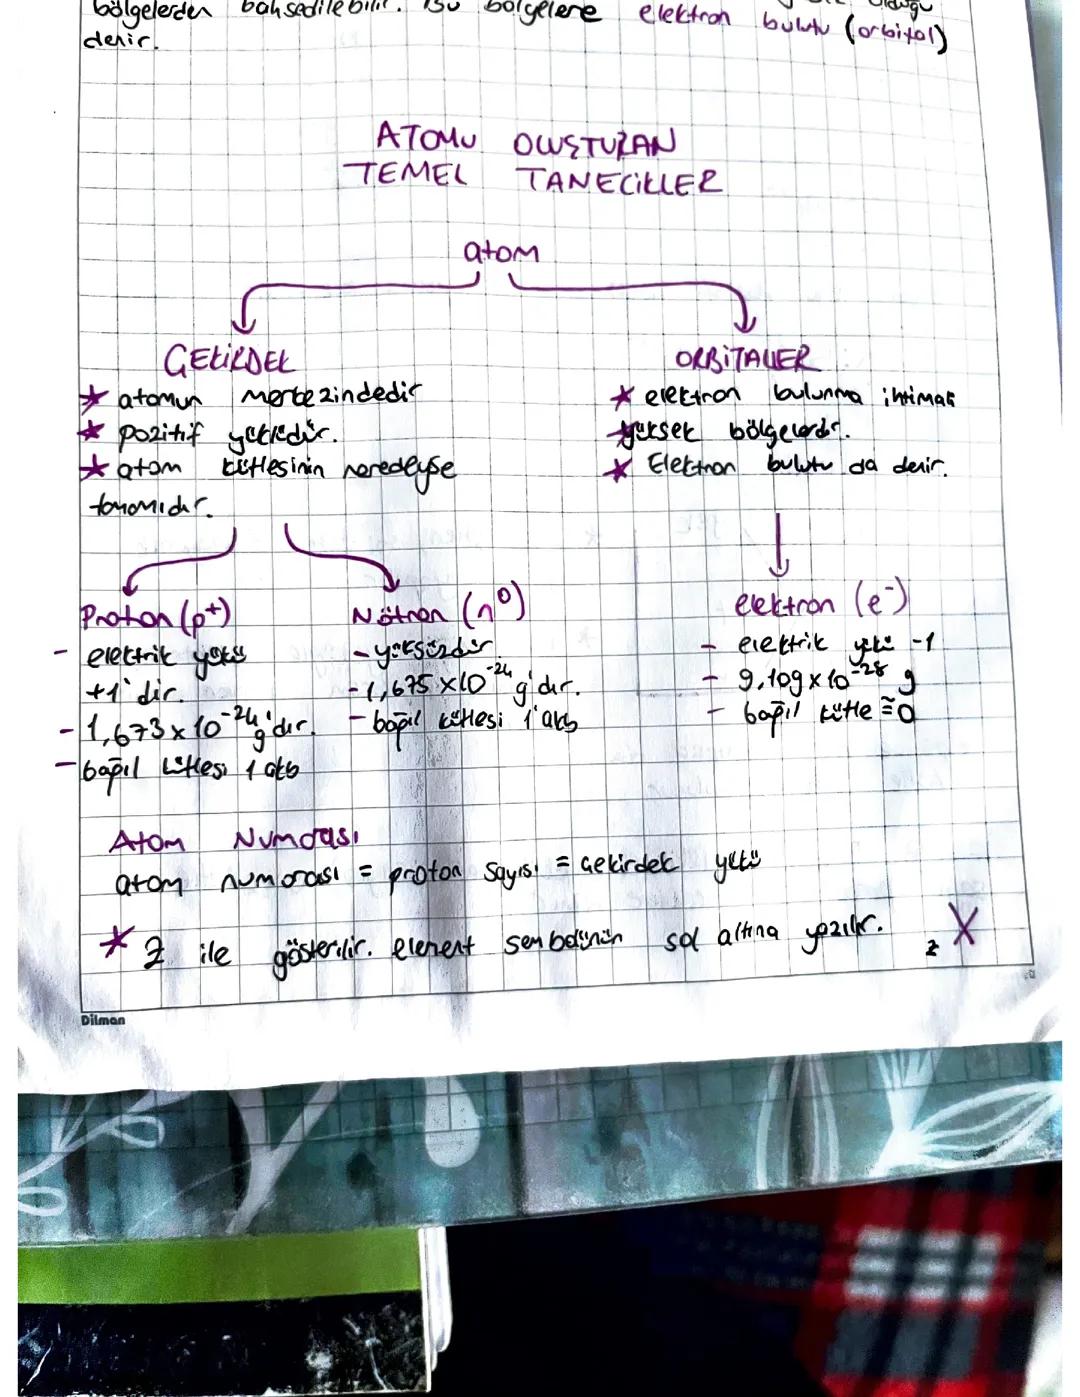 bölgelerden bahsedilebilir. Bu bölgelere elektron bulutu (orbital)
denir.
ATOMU OLUŞTURAN
TEMEL TANECİKLER
atom
ÇEKİRDEK
★ atomun merkezindedir
★ pozitif yüklüdür.
★ atom kütlesinin neredeyse
tamamıdır.
ORBİTALLER
★ elektron bulunma ihtimali
yüksek bölgelerdir.
★ Elektron bulutu da denir.
Proton (p+)
- elektrik yükü
+1'dir.
- 1,673 x 10⁻²⁴ g'dır.
- bağıl kütlesi 1 akb
Nötron (n⁰)
- yüksüzdür.
- 1,675 x10⁻²⁴ g'dır.
- bağıl kütlesi 1 akb
elektron (e⁻)
- elektrik yükü -1
- 9,109 x 10⁻²⁸ g
- bağıl kütle ≅ 0
Atom Numarası
atom numarası = proton sayısı = çekirdek yükü
★ Z ile gösterilir. element sembolünün sol altına yazılır. zX
Dilman